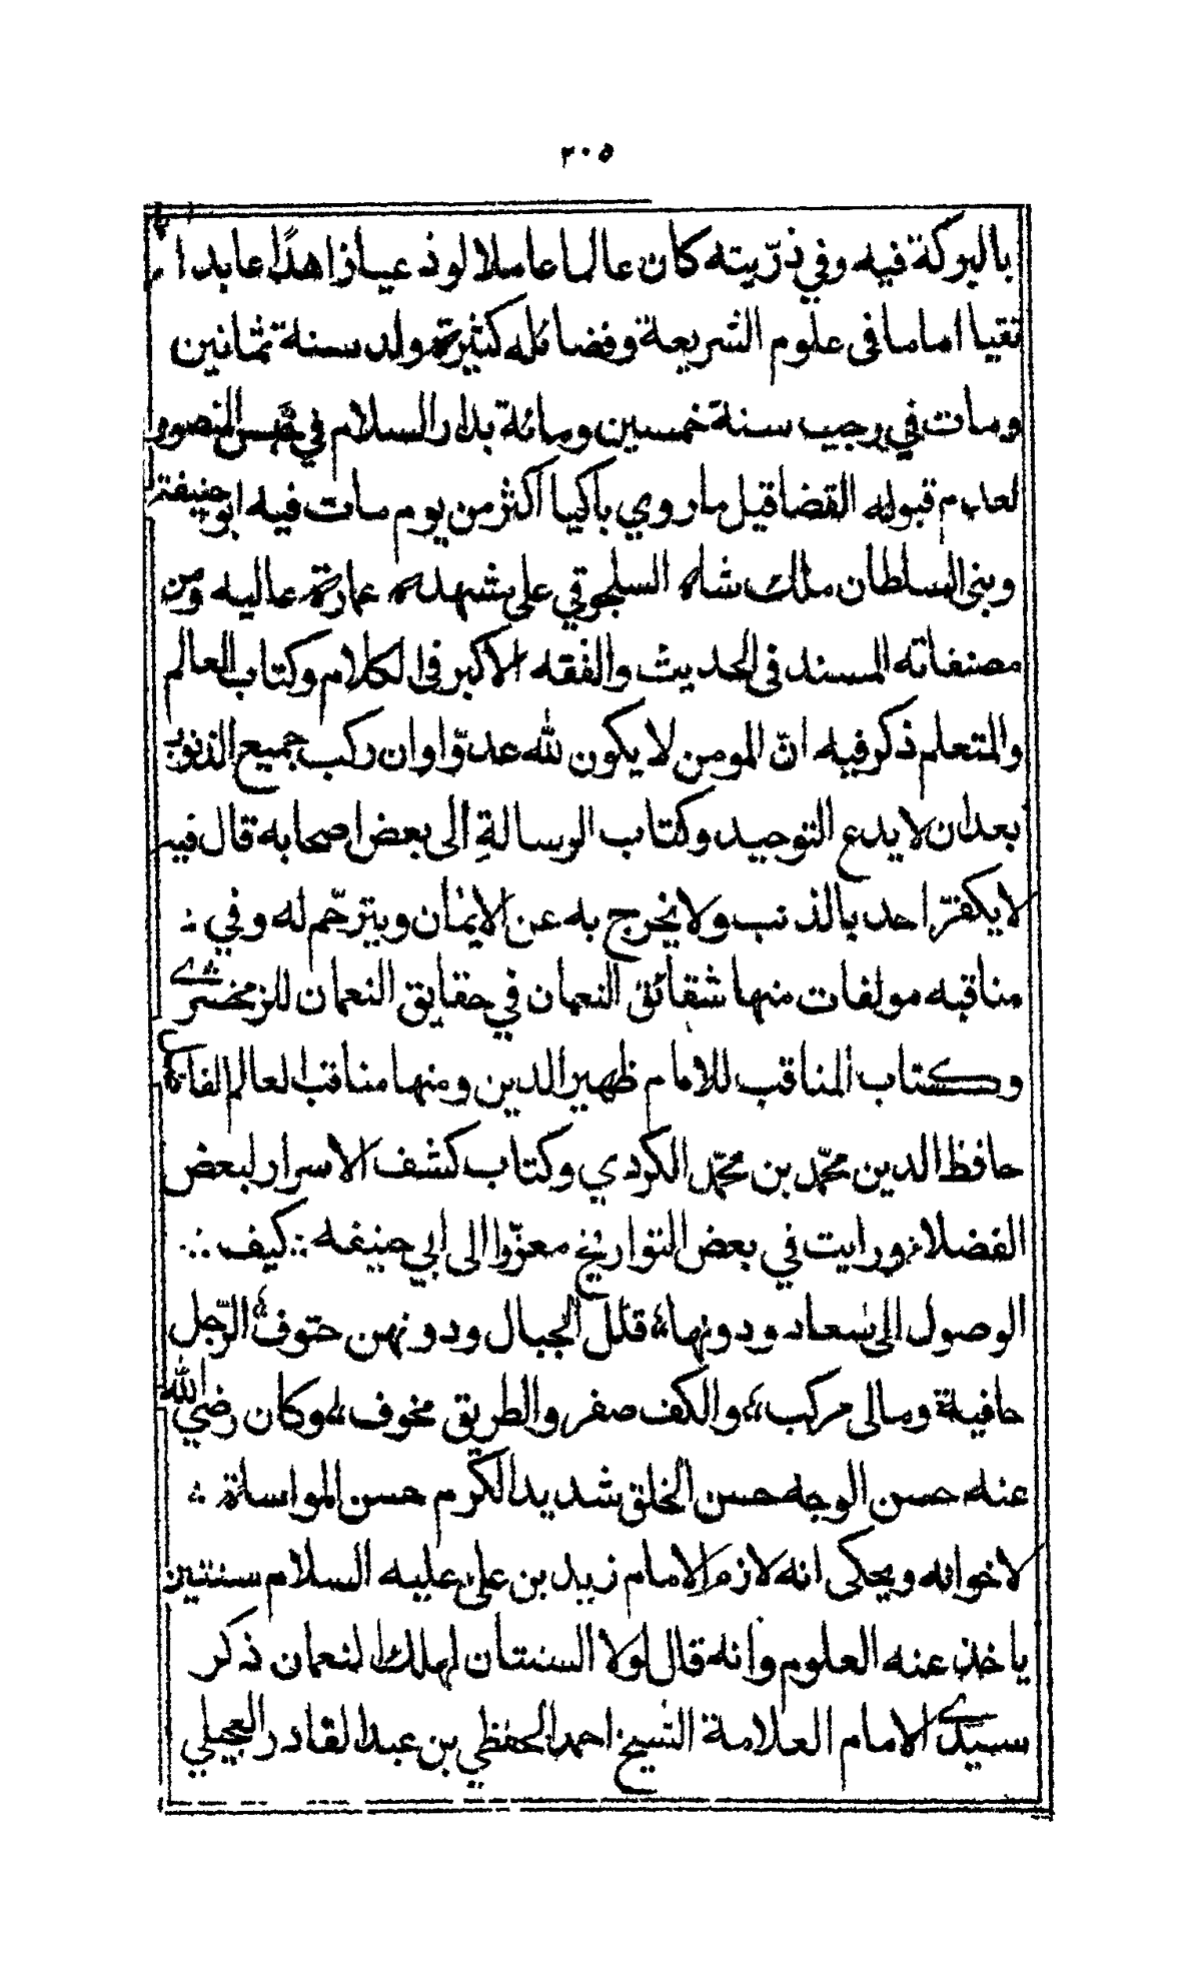 ٢٠٥
بالبركة فيه وفي ذرّيته كان عالما عاملا لوذعيا زاهدًا عابدا
تقيا اماما فى علوم الشريعة وفضائله كثيرة مولد سنة ثمانين
ومات في رجب سنة خمسين ومائة بدار السلام في حبس المنصور
لعدم قبوله القضا قيل ما روي باكيا اكثر من يوم مات فيه ابو حنيفة
وبنى السلطان ملك شاه السلجوقي على مشهده عمارة عاليه ومن
مصنفاته المسند فى الحديث والفقه الاكبر فى الكلام وكتاب العالم
والمتعلم ذكر فيه انّ المومن لا يكون لله عدوّا وان ركب جميع الذنوب
بعد ان لا يدع التوحيد وكتاب الرسالةِ الى بعض اصحابه قال فيه
لا يكفرّ احد بالذنب ولا يخرج به عن الايمان ويترحّم له وفي ؞
مناقبه مولفات منها شقائق النعمان في حقايق النعمان للزمخشرى
وكتاب المناقب للامام ظهير الدين ومنها مناقب العالم
حافظ الدين محمّد بن محمّد الكردي وكتاب كشف الاسرار لبعض
الفضلاء ورايت في بعض التواريخ معزوّا الى ابي حنيفه ؞ كيف ؞
الوصول الى سعاد ودونها، قلل الجبال ودونهن حتوف، الرّجل
حافية ومالى مركب، والكف صفر والطريق مخوف، وكان رضي الله
عنه حسن الوجه حسن الخلق شديد الكرم حسن المواساة ؞
لاخوانه ويحكى انه لازم الامام زيد بن على عليه السلام سنتين
ياخذ عنه العلوم وانه قال لولا السنتان لهلك النعمان ذكر
سيدى الامام العلامة الشيخ احمد الحفظي بن عبد القادر العجيلي